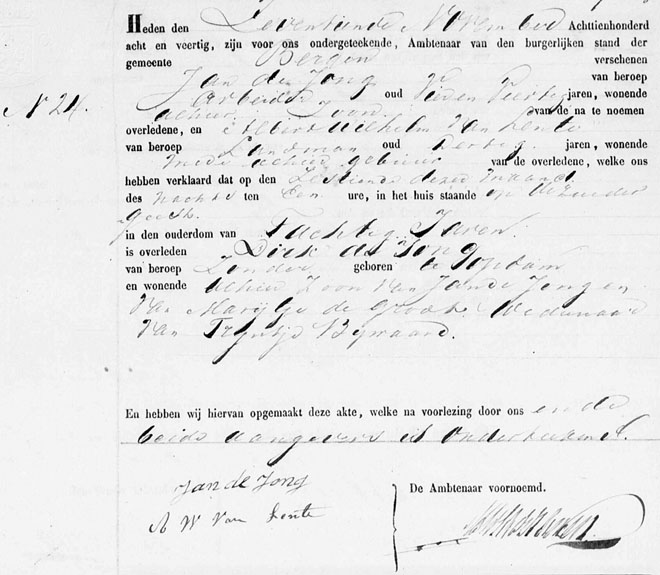 Heden den Zeventiende November Achttienhonderd
acht en veertig, zijn voor ons ondergeteekende, Ambtenaar van den burgerlijken stand der
gemeente Bergen verschenen
Jan de Jong van beroep
Arbeider oud Vier en Veertig jaren, wonende
alhier Zoon van de na te noemen
N 24.
overledene, en Albert Wilhelm Van Lente
van beroep Landman oud Dertig jaren, wonende
mede alhier gebuur van de overledene, welke ons
hebben verklaard dat op den Zestiende dezer maand
des nachts ten Een ure, in het huis staande op de
Geest.
in den ouderdom van Tachtig Jaren
is overleden Dirk de Jong
van beroep Zonder geboren te Opdam
en wonende alhier Zoon van Jan de Jong en
Van Marijtje de Groot Weduwnaar
Van Trijntje Bijwaard.
En hebben wij hiervan opgemaakt deze akte, welke na voorlezing door ons en de
beide aangevers is Onderteekend.
Jan de Jong
De Ambtenaar voornoemd.
A W Van Lente